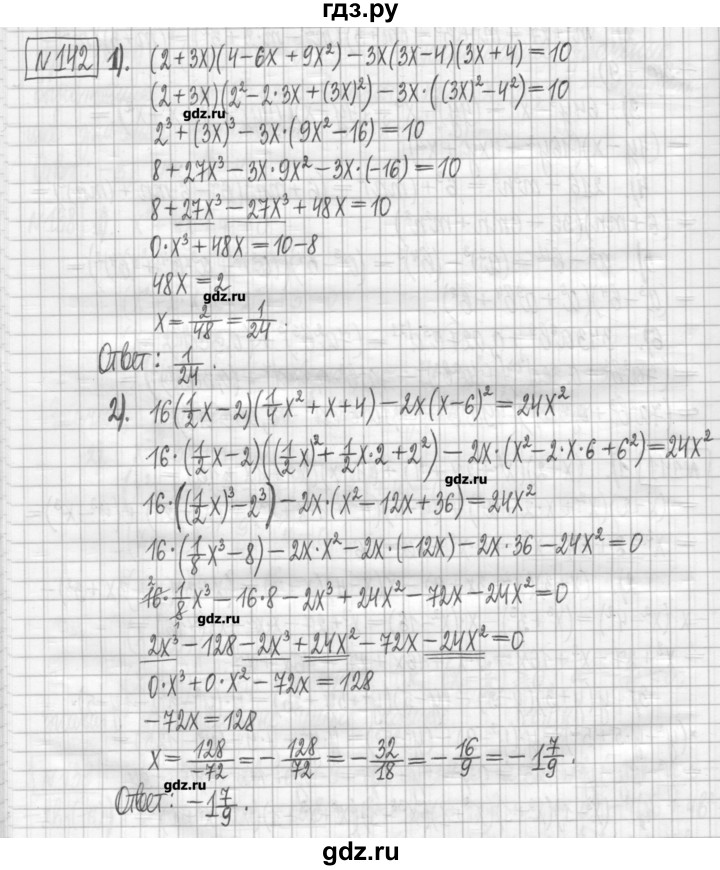 гдз.ру
№142 1). (2+3x)(4−6x+9x²)−3x(3x−4)(3x+4)=10
(2+3x)(2²−2·3x+(3x)²)−3x·((3x)²−4²)=10
gdz.ru
2³+(3x)³−3x·(9x²−16)=10
8+27x³−3x·9x²−3x·(−16)=10
8+27x³−27x³+48x=10
0·x³+48x=10−8
48x=2
gdz.ru
x=2/48=1/24.
Ответ: 1/24.
2). 16(1/2x−2)(1/4x²+x+4)−2x(x−6)²=24x²
16·(1/2x−2)((1/2x)²+1/2x·2+2²)−2x·(x²−2·x·6+6²)=24x²
gdz.ru
16·((1/2x)³−2³)−2x·(x²−12x+36)=24x²
16·(1/8x³−8)−2x·x²−2x·(−12x)−2x·36−24x²=0
16·1/8x³−16·8−2x³+24x²−72x−24x²=0
gdz.ru
2x³−128−2x³+24x²−72x−24x²=0
0·x³+0·x²−72x=128
−72x=128
x=128/−72=−128/72=−32/18=−16/9=−1 7/9.
gdz.ru
Ответ: −1 7/9.
gdz.ru